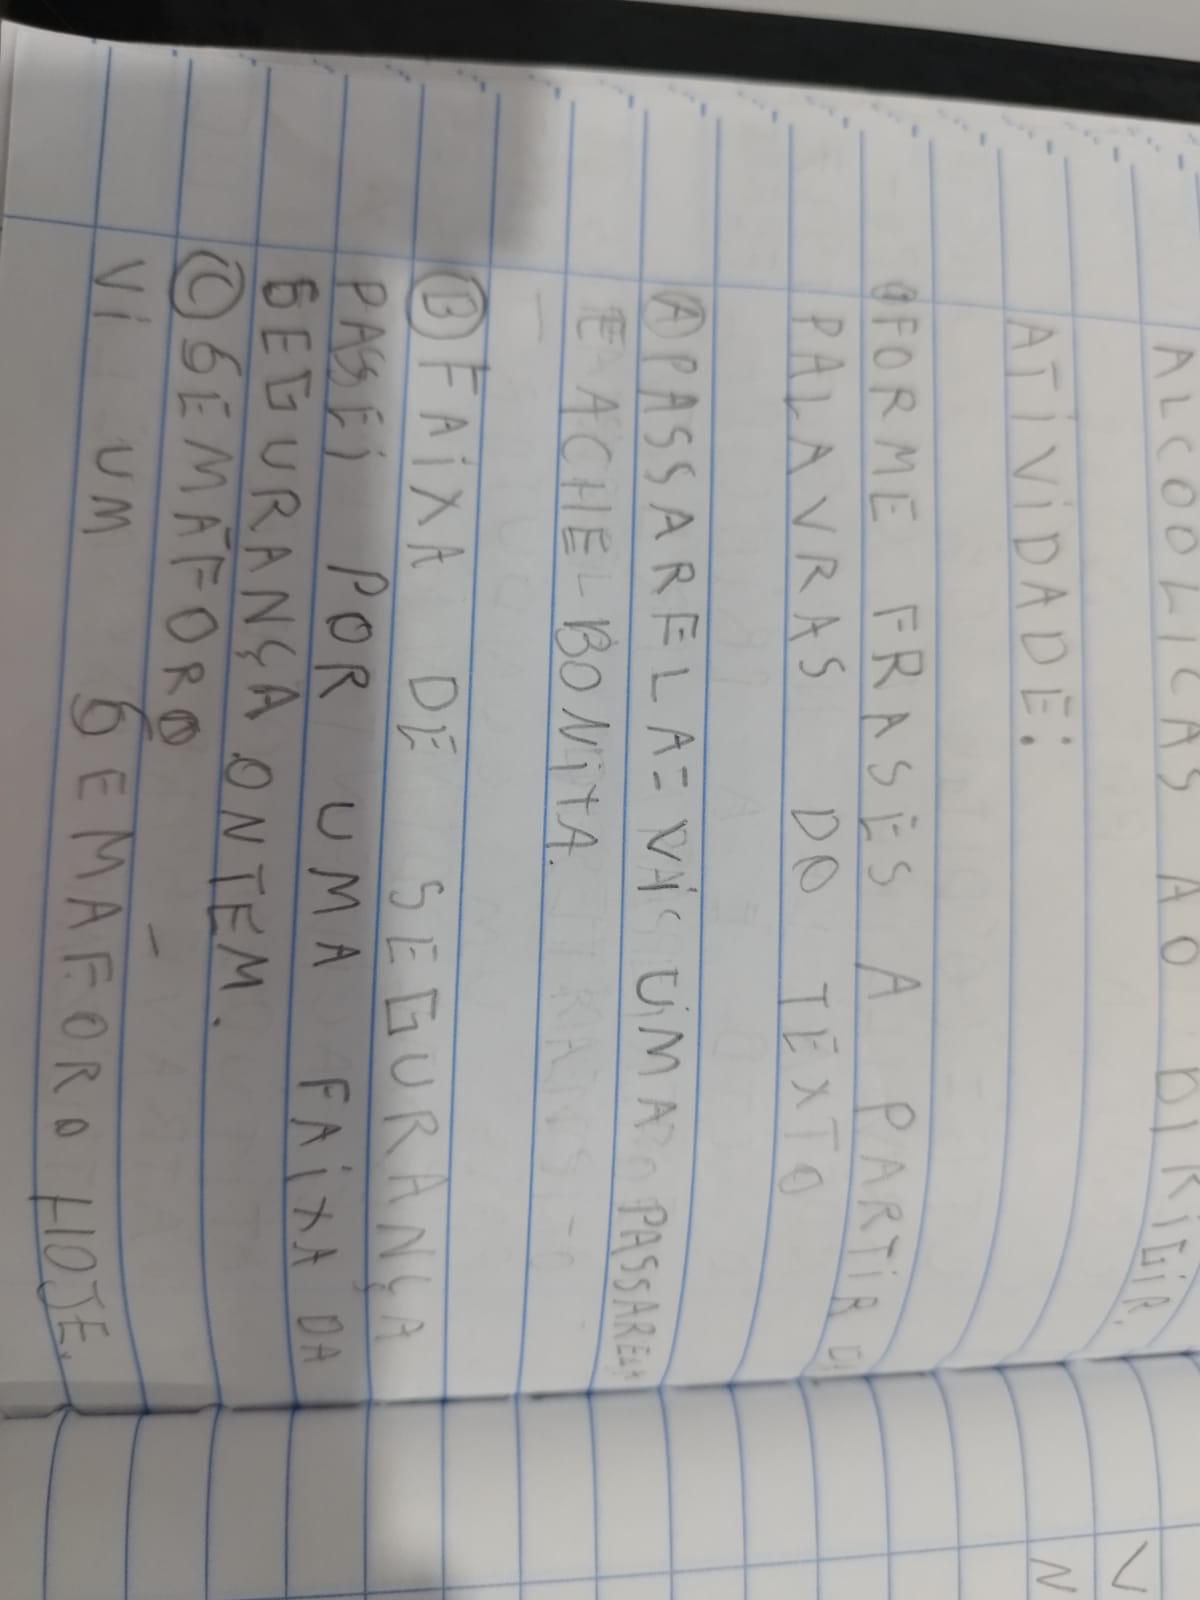 ALCOOLICAS AO DIRIGIR.
ATIVIDADE:
FORME FRASES A PARTIR
PALAVRAS DO TEXTO
A PASSARELA = VI UMA PASSARELA
E ACHEI BONITA.
B FAIXA DE SEGURANÇA
PASSEI POR UMA FAIXA DA
SEGURANÇA ONTEM.
C SEMÁFORO
VI UM SEMAFORO HOJE.
V
N